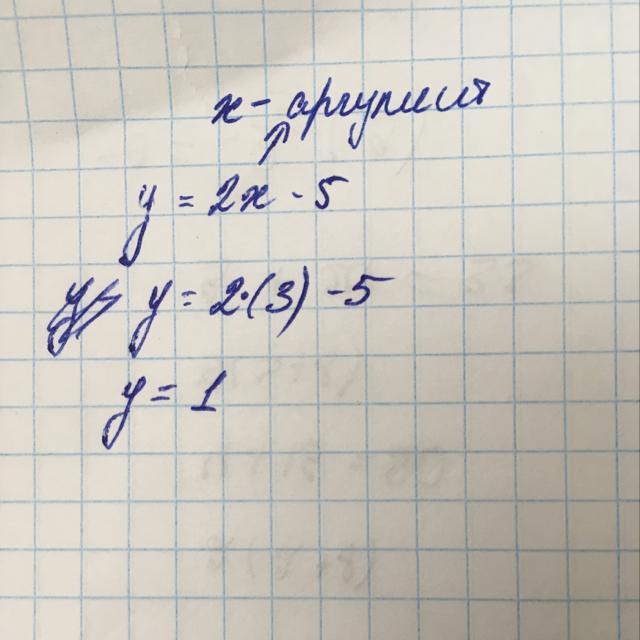 x - аргумент
y = 2x - 5
y = 2·(3) - 5
y = 1